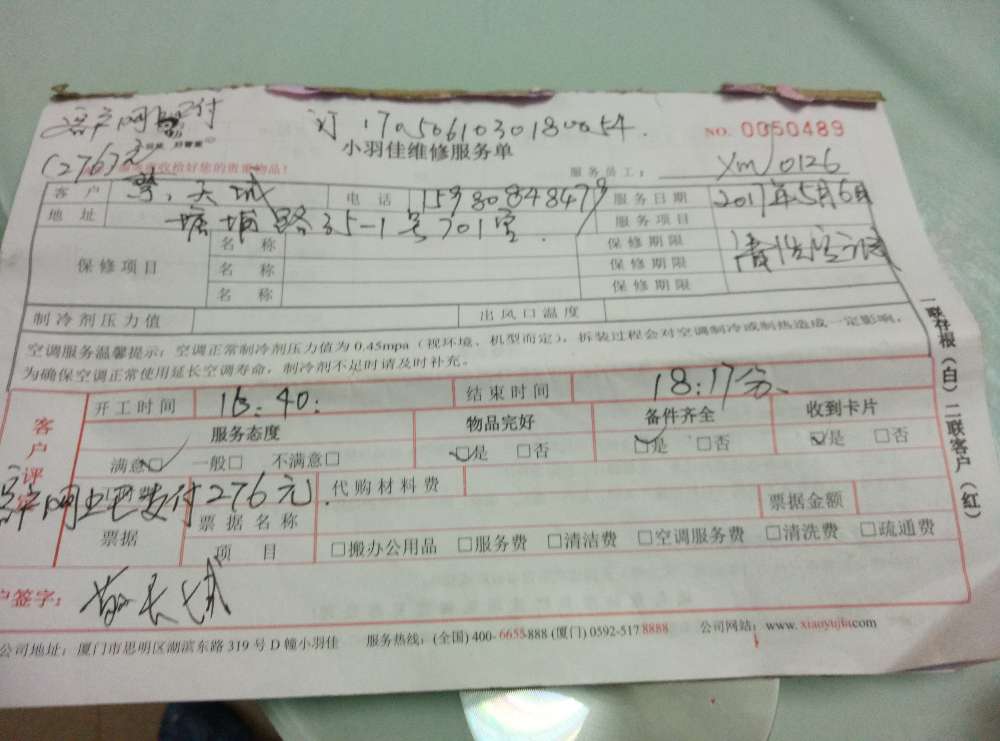 客户网上已付
订 1705061030180054.
NO. 0050489
(276)元 收检好您的贵重物品!
小羽佳维修服务单
服务员工: Xm 0126
客户 电话 15980848479 服务日期 2017年5月6日
地址 塘埔路35-1号701室. 服务项目
保修项目 名称 保修期限
名称 保修期限
名称 保修期限
清洗空调
制冷剂压力值 出风口温度
空调服务温馨提示: 空调正常制冷剂压力值为 0.45mpa (视环境、机型而定), 拆装过程会对空调制冷或制热造成一定影响,
为确保空调正常使用延长空调寿命, 制冷剂不足时请及时补充。
一联存报(白)二联客户(红)
客户评
开工时间 16:40: 结束时间 18:17分
服务态度 物品完好 备件齐全 收到卡片
满意□ 一般□ 不满意□ □是 □否 □是 □否 □是 □否
客户网上已支付276元. 代购材料费
票据 票据名称 票据金额
项目 □搬办公用品 □服务费 □清洁费 □空调服务费 □清洗费 □疏通费
户签字:
公司地址: 厦门市思明区湖滨东路 319 号 D 幢小羽佳 服务热线: (全国) 400-6655-888 (厦门) 0592-517 8888 公司网站: www.xiaoyujia.com